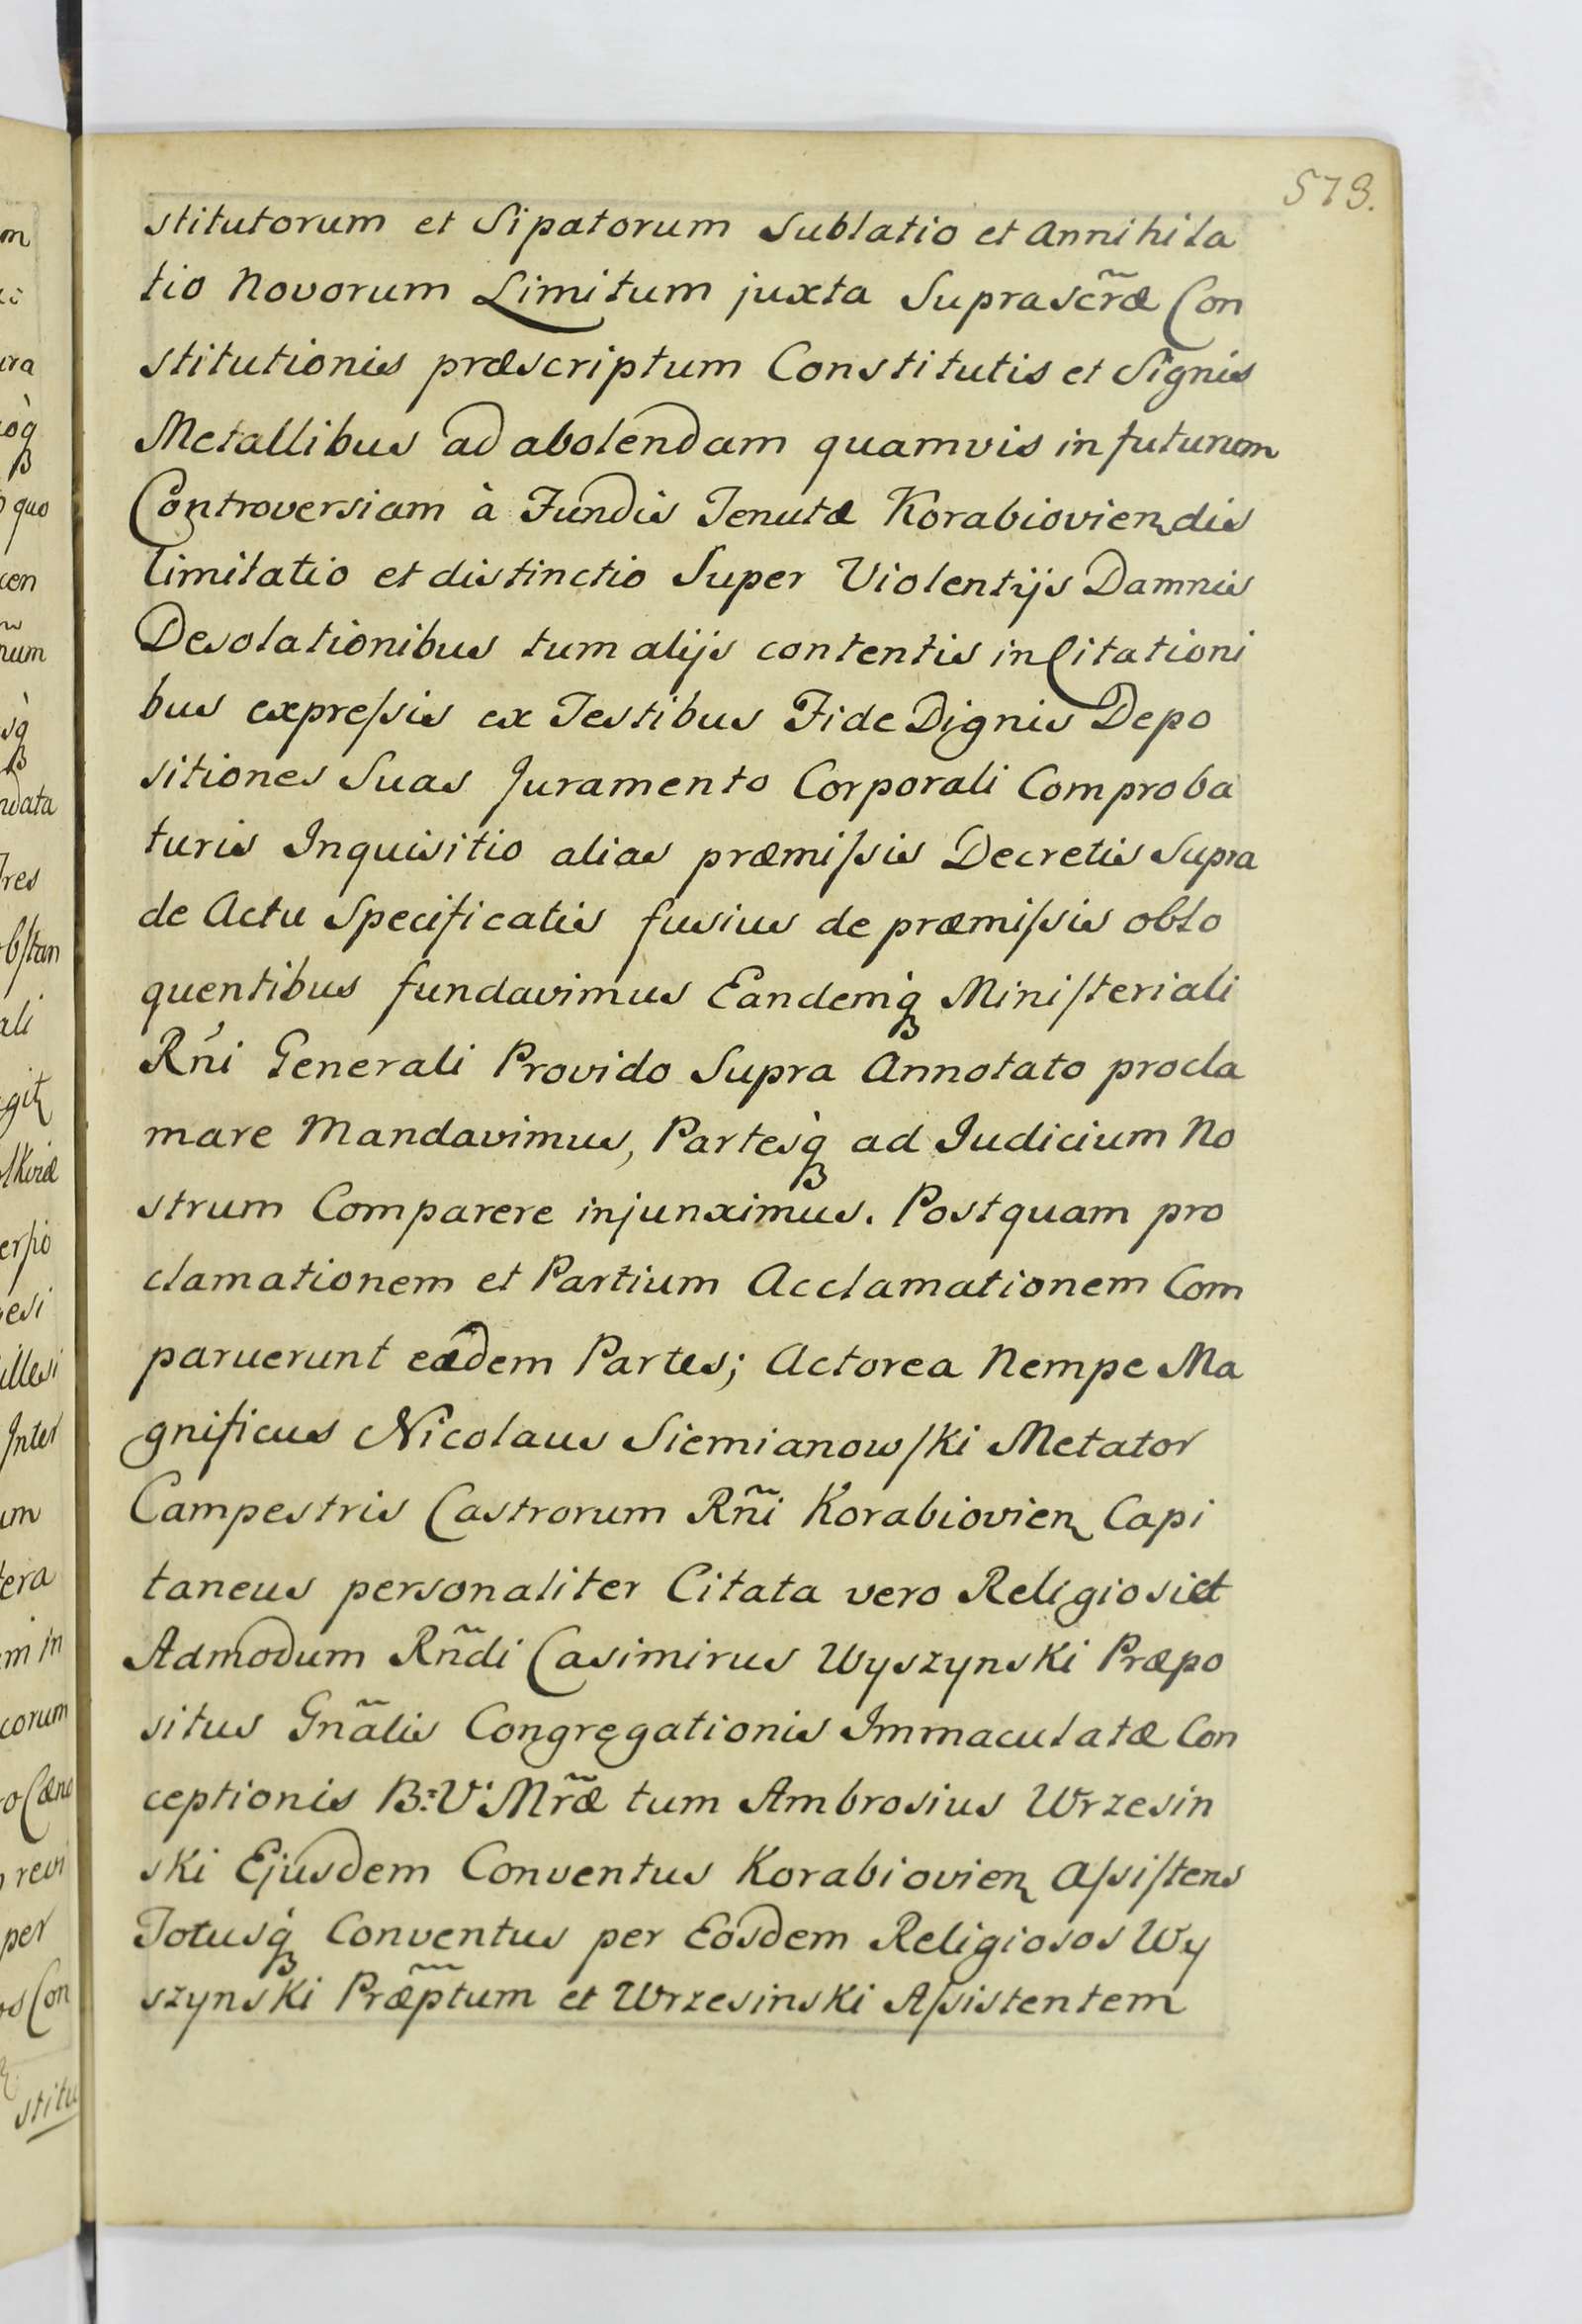 573.
stitutorum et Sipatorum Sublatio et Annihila
tio Novorum Limitum juxta Suprascr̃æ Con
stitutionis præscriptum Constitutis et Signis
Metallibus ad abolendam quamvis in futurum
Controversiam à Fundis Tenutæ Korabiovien dis
limitatio et distinctio Super Violentijs Damnis
Desolationibus tum alijs contentis in Citationi
bus expreſsis ex Testibus Fide Dignis Depo
sitiones Suas Juramento Corporali Comproba
turis Inquisitio alias præmiſsis Decretis Supra
de Actu Specificatis fusius de præmiſsis oblo
quentibus fundavimus Eandemq̀ Miniſteriali
Rñi Generali Provido Supra Annotato procla
mare Mandavimus, Partesq̀ ad Judicium No
strum Comparere injunximus. Postquam pro
clamationem et Partium Acclamationem Com
paruerunt eædem Partes; Actorea Nempe Ma
gnificus Nicolaus Siemianowſki Metator
Campestris Castrorum Rñi Korabiovien Capi
taneus personaliter Citata vero Religiosi et
Admodum Rñdi Casimirus Wyszynski Præpo
situs Gnãlis Congregationis Immaculatæ Con
ceptionis B: V: Mr̃æ tum Ambrosius Wrzesin
ski Ejusdem Conventus Korabiovien Aſsiſtens
Totusq̀ Conventus per Eosdem Religiosos Wy
szynski Præp̃tum et Wrzesinski Aſsistentem